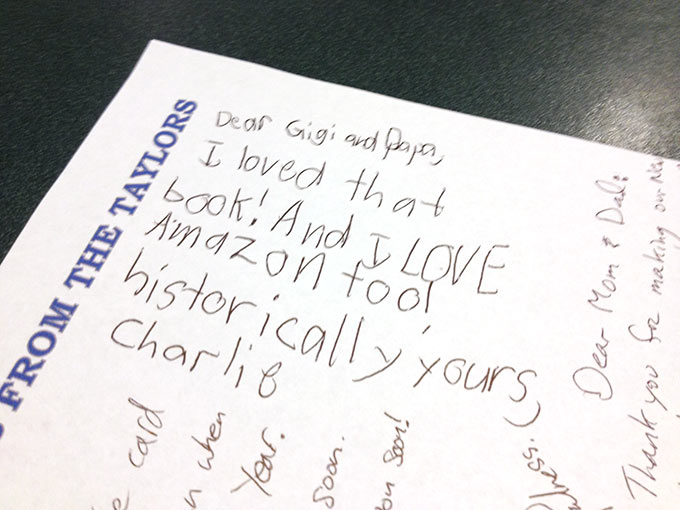 FROM THE TAYLORS
Dear Gigi and Papa,
I loved that
book! And I LOVE
Amazon too!
historically yours,
Charlie
card
n when
Year.
soon.
soon!
Dear Mom & Dad:
Thank you for making our